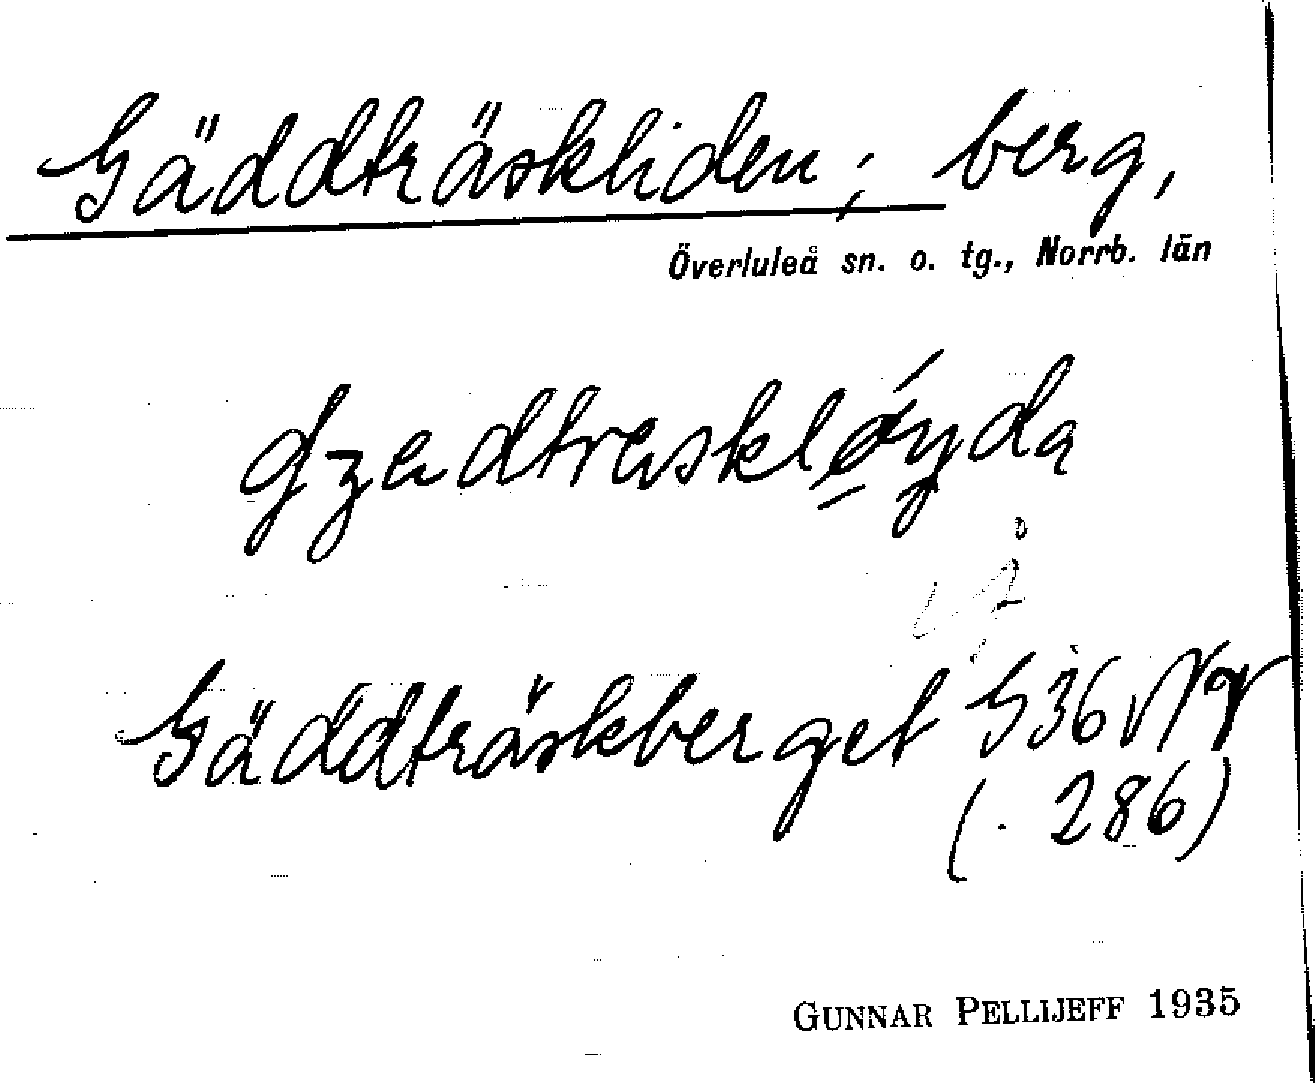 Gäddträskliden; berg,
Överluleå sn. o. tg., Norrb. län
Gäddträskberget G36
(. 286)
GUNNAR PELLIJEFF 1935